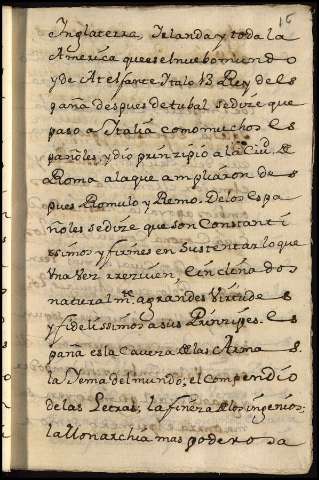 16
Inglaterra, Irlanda, y toda la
America que es el nuebo mundo
y de Atelfante Italo VB Rey de Es
paña despues de tubal se dize que
paso a Italia como muchos Es
pañoles, y dio prinzipio a la Ciud. de
Roma a la que ampliaron des
pues Romulo y Remo. De los Espa
ñoles se dize que son Constanti
ssimos y firmes en sustentar lo que
Una vez rreziven, e inclina dos
natural mte. a grandes Virtudes
y fidelissimos a sus Prinzipes. Es
paña es la Cavesa de las Armas.
la Tema del mundo; el compendio
de las Letras; la fineza de los ingenios;
la Monarchia mas poderosa